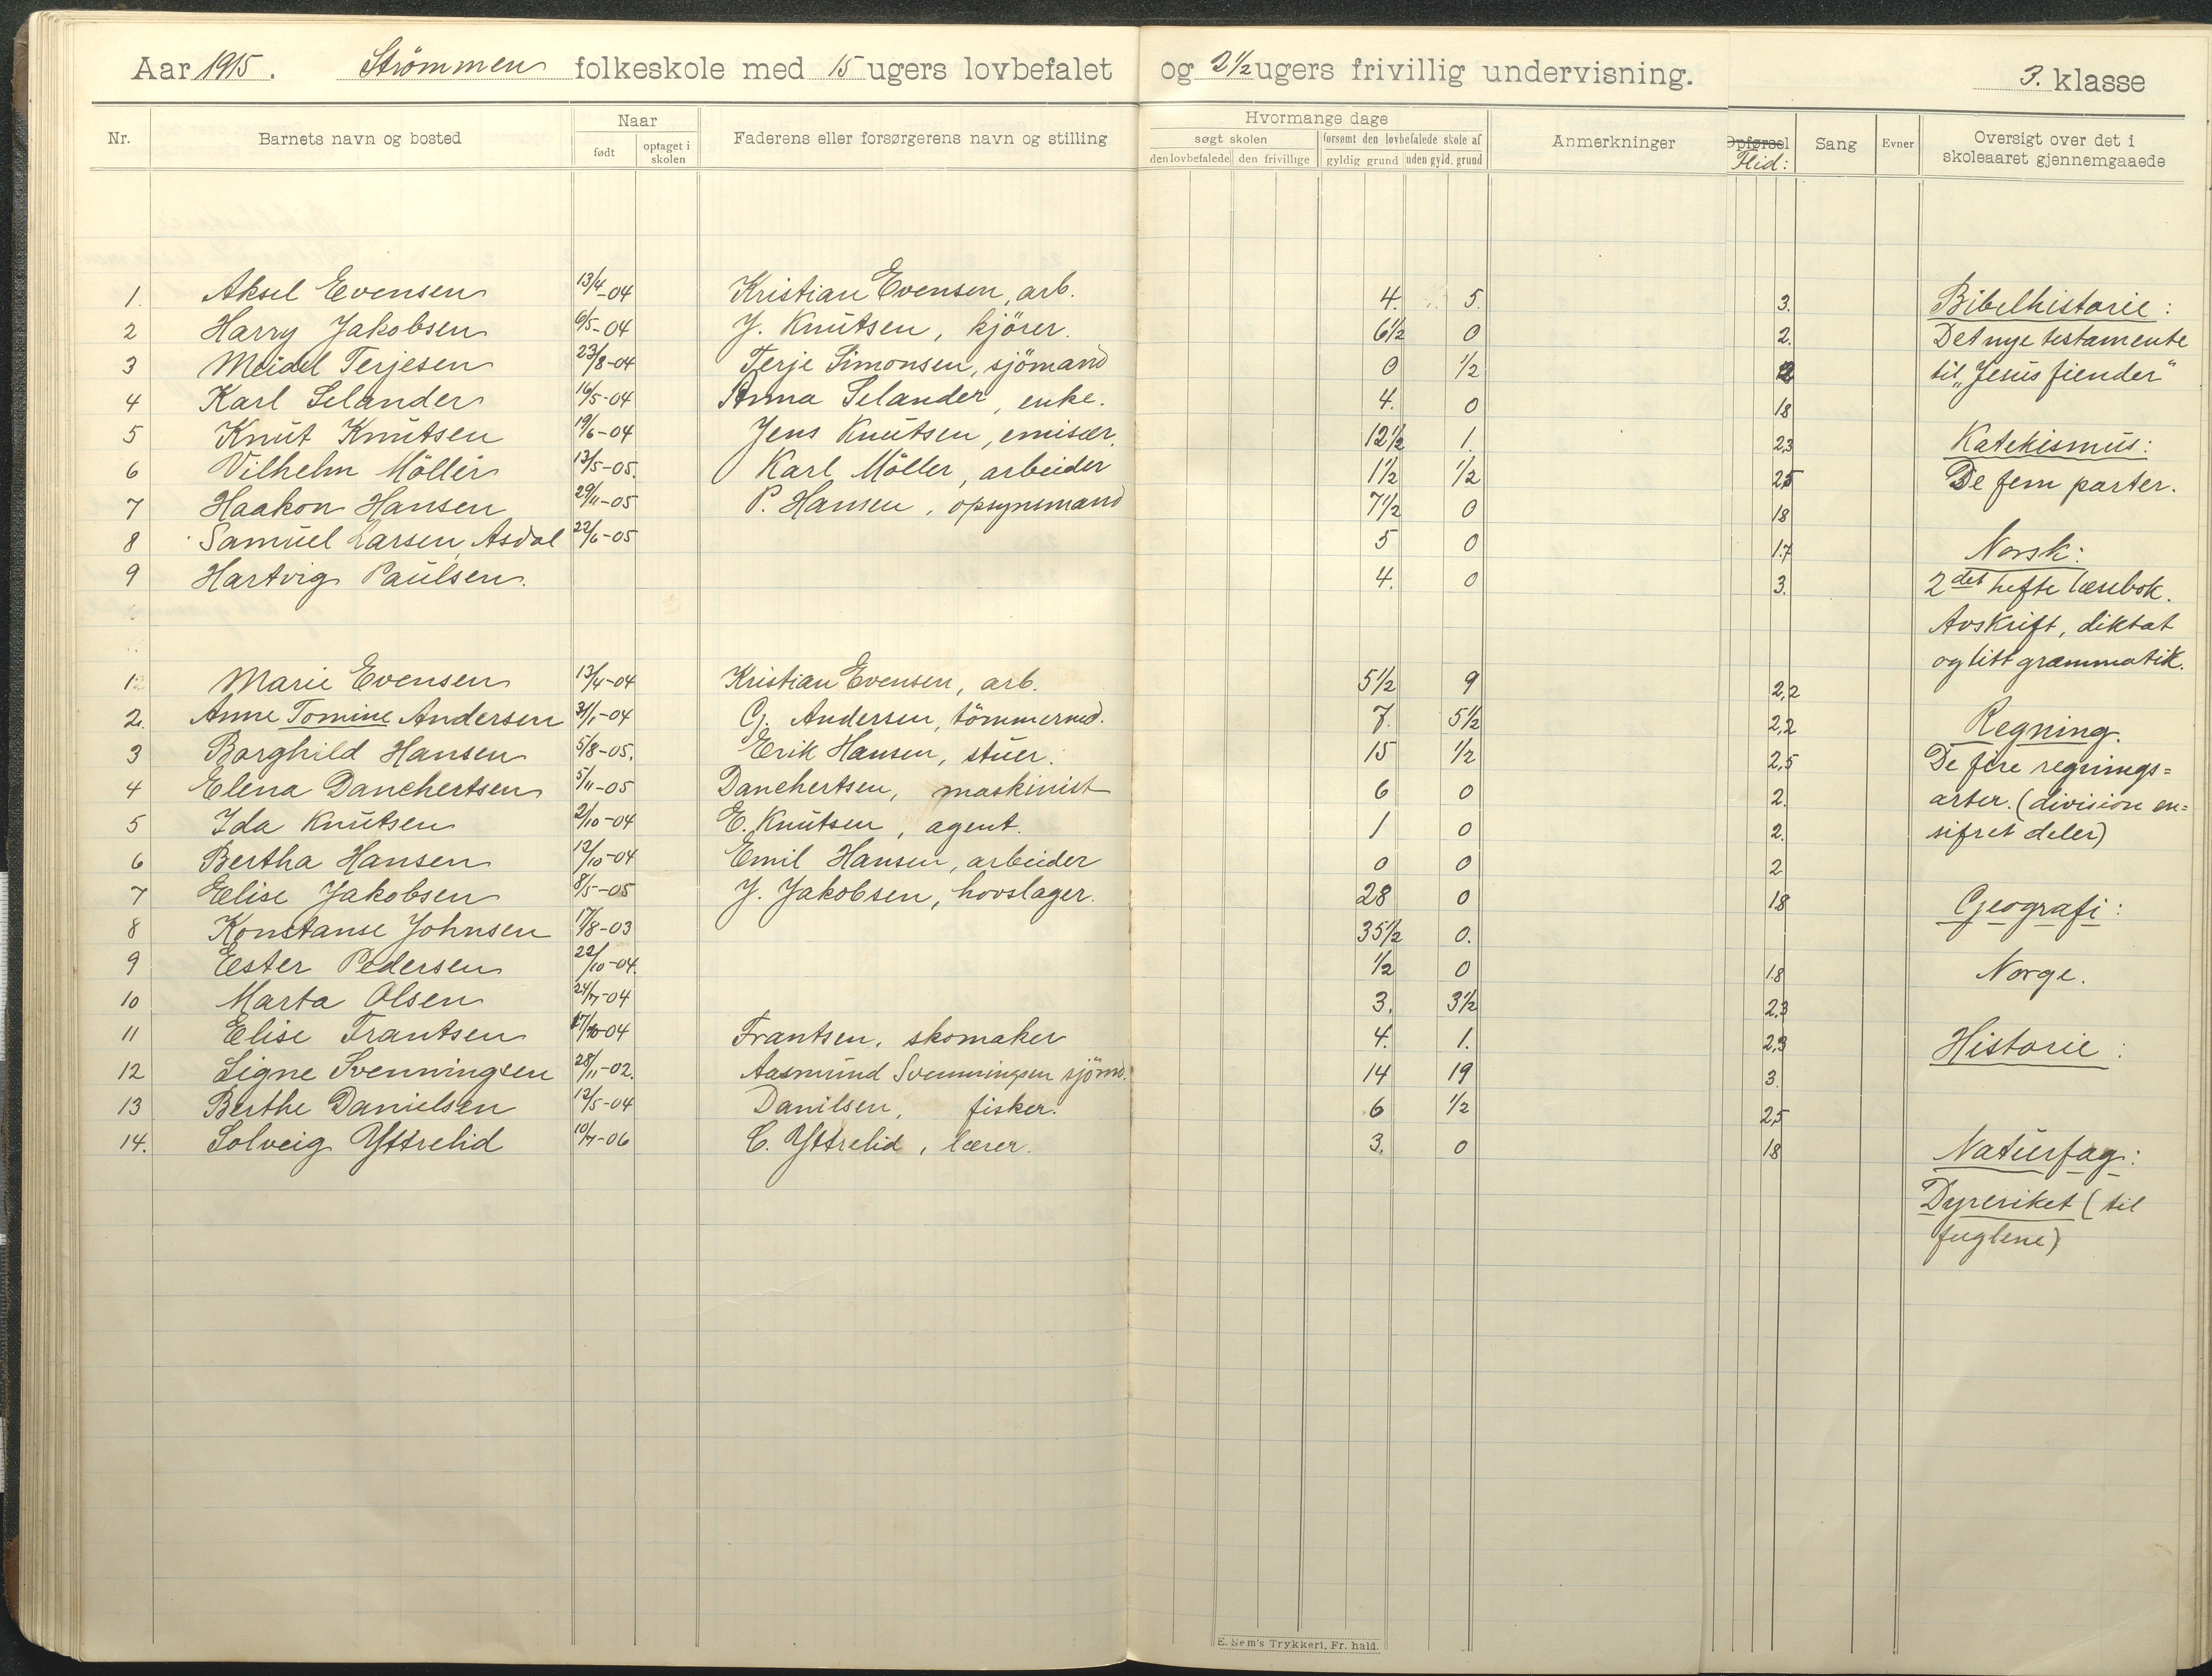 Aar 1915. Strömmen folkeskole med 15 ugers lovbefalet og 2½ ugers frivillig undervisning. 3. klasse
Nr. Barnets navn og bosted Naar født optaget i skolen Faderens eller forsørgerens navn og stilling
Hvormange dage
søgt skolen forsømt den lovbefalede skole af
den lovbefalede den frivillige gyldig grund uden gyld. grund
Anmerkninger Opførsel Flid: Sang Evner Oversigt over det i skoleaaret gjennemgaaede
1. Aksel Evensen 13/4-04 Kristian Evensen, arb. 4. 5. 3.
2 Harry Jakobsen 6/5-04 J. Knutsen, kjörer. 6½ 0 2.
3 Meidel Terjesen 23/8-04 Terje Simonsen, sjömand 0 ½ 2
4 Karl Selander 16/5-04 Anna Selander, enke. 4. 0 18
5 Knut Knutsen 19/6-04 Jens Knutsen, emisær. 12½ 1. 23
6 Vilhelm Möller 13/5-05. Karl Möller, arbeider 1½ ½ 25
7 Haakon Hansen 29/11-05 P. Hansen, opsynsmand 7½ 0 18
8 Samuel Larsen, Asdal 22/6-05 5 0 1.7
9 Hartvig Paulsen. 4. 0 3.
1 Marie Evensen 13/4-04 Kristian Evensen, arb. 5½ 9 2,2
2. Anne Tomine Andersen 31/1-04 G. Andersen, tömmermd. 7. 5½ 2,2
3 Borghild Hansen 5/8-05. Erik Hansen, stuer. 15 ½ 2,5
4 Elena Danchertsen 5/11-05 Danchertsen, maskinist 6 0 2.
5 Ida Knutsen 2/10-04 E. Knutsen, agent. 1 0 2.
6 Bertha Hansen 12/10-04 Emil Hansen, arbeider 0 0 2
7 Elise Jakobsen 8/5-05 J. Jakobsen, hovslager. 28 0 18
8 Konstanse Johnsen 17/8-03 35½ 0.
9 Ester Pedersen 22/10-04. ½ 0 1.8
10 Marta Olsen 24/7-04 3. 3½ 2,3
11 Elise Frantsen 17/10-04 Frantsen, skomaker 4. 1. 2,3
12 Signe Svenningsen 28/11-02. Aasmund Svenningsen sjömd. 14 19 3.
13 Berthe Danielsen 12/5-04 Danilsen, fisker. 6 ½ 2,5
14. Solveig Yttrelid 10/7-06 C. Yttrelid, lærer. 3. 0 18
Bibelhistorie:
Det nye testamente
til „Jesus fiender"
Katekismus:
De fem parter.
Norsk:
2det hefte læsebok.
Avskrift, diktat
og litt grammatik.
Regning.
De fire regnings=
arter. (division en=
sifret deler)
Geografi:
Norge.
Historie:
Naturfag:
Dyreriket (til
fuglene)
E. Sem's Trykkeri, Fr. hald.